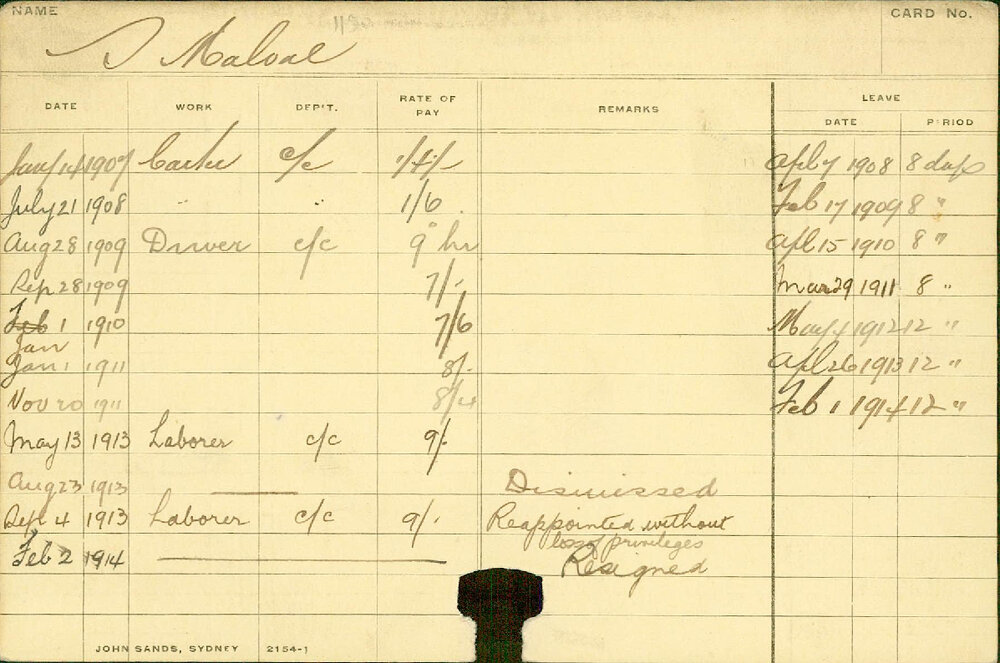 NAME
CARD No.
J Maloal
DATE WORK DEP'T. RATE OF PAY REMARKS LEAVE
DATE PERIOD
Jany 14 1907 Carter c/c 1/4/- Apl 7 1908 8 days
July 21 1908 " " 1/6 Feb 17 1909 8 "
Aug 28 1909 Driver c/c 9" hr Apl 15 1910 8 "
Sep 28 1909 7/- Mar 29 1911 8 "
Feb 1 1910 7/6 May 4 1912 12 "
Jan
Jan 1 1911 8/- Apl 26 1913 12 "
Nov 20 1911 8/4 Feb 1 1914 12 "
May 13 1913 Laborer c/c 9/-
Aug 23 1913 Dismissed
Sept 4 1913 Laborer c/c 9/- Reappointed without
loss of privileges
Feb 2 1914 Resigned
JOHN SANDS, SYDNEY 2154-1